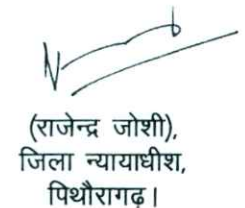 (राजेन्द्र जोशी),
जिला न्यायाधीश,
पिथौरागढ़।